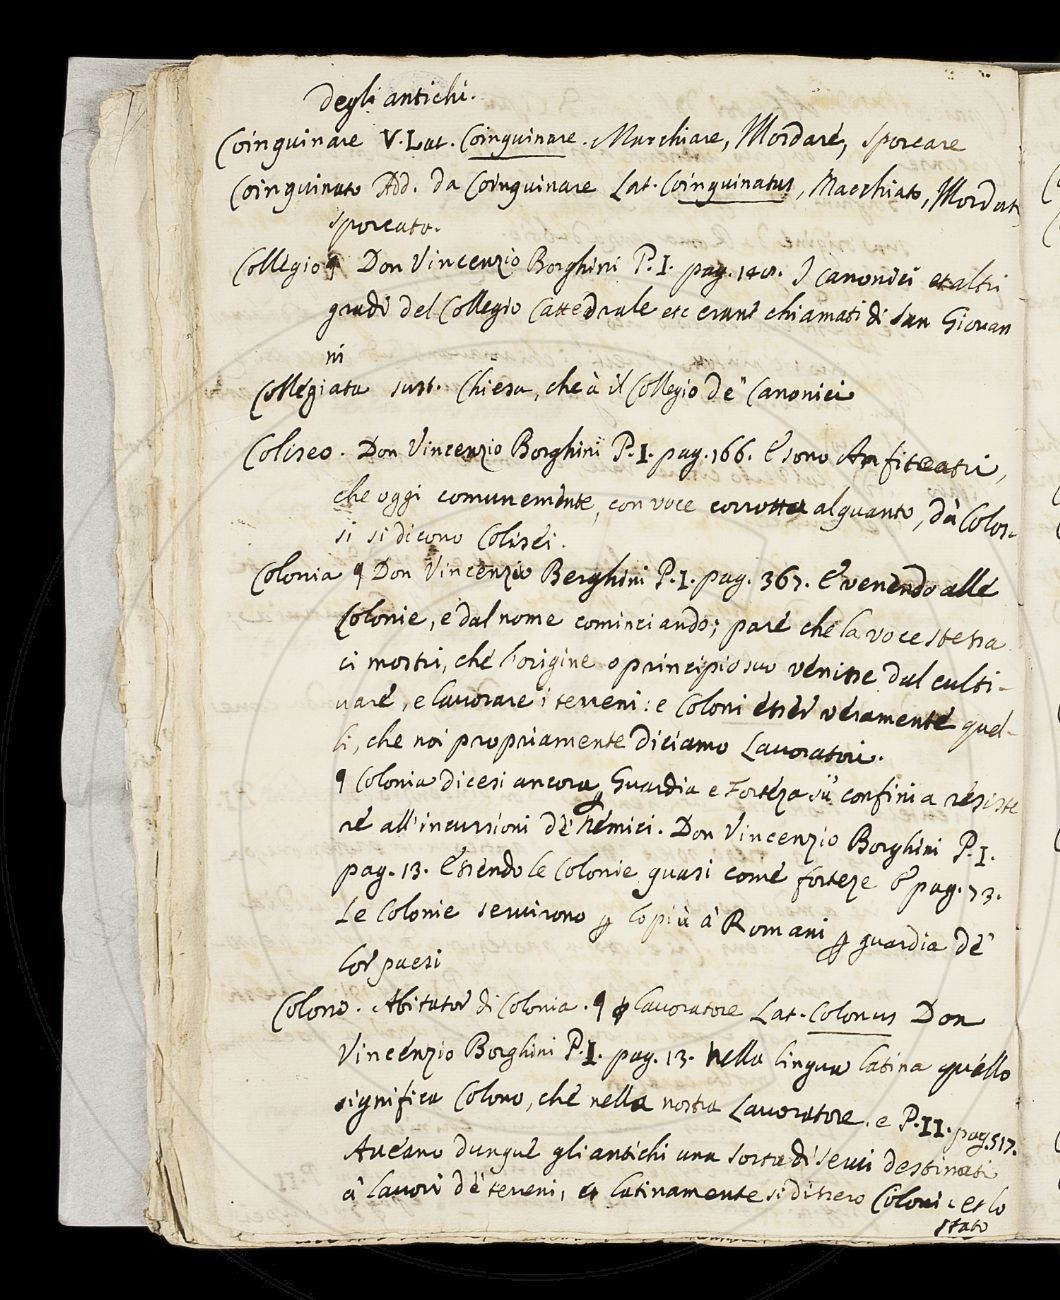 degli antichi.
Coinquinare V. Lat. Coinquinare. Macchiare, Mordare, sporcare
Coinquinato Add. da Coinquinare Lat. Coinquinatus, Macchiato, Mordat
sporcato.
Collegio ¶ Don Vincenzio Borghini P. I. pag. I canonici et altri
gradi del Collegio Cattedrale etc erano chiamati di San Giovan
ni
Collegiata sust. Chiesa, che à il Collegio de' Canonici
Coliseo. Don Vincenzio Borghini P. I. pag. 166. E sono Anfiteatri,
che oggi comunemente, con voce corrotta alquanto, da Colos-
si si dicono Colisei.
Colonia ¶ Don Vincenzio Borghini P. I. pag. 367. E venendo alle
Colonie, e dal nome cominciando; pare che la voce stessa
ci mostri, che l'origine o principio suo venisse dal culti-
vare, e lavorare i terreni: e Coloni esser veramente quel-
li, che noi propriamente diciamo Lavoratori.
¶ Colonia dicesi ancora Guardia e Forteza su' confini a resiste
re all'incursioni de' nemici. Don Vincenzio Borghini P. I.
pag. 13. Essendo le Colonie quasi come forteze & pag. 73.
Le Colonie servirono p lo più a' Romani p guardia de'
lor paesi
Colono. Abitator di Colonia. ¶ p lavoratore Lat. Colonus Don
Vincenzio Borghini P. I. pag. 13. nella lingua latina quello
significa Colono, che nella nostra Lavoratore. e P. II. pag. 517.
Aveano dunque gli antichi una sorta di servi destinati
a' lavori de' terreni, e latinamente si dissero Coloni: et lo
stato